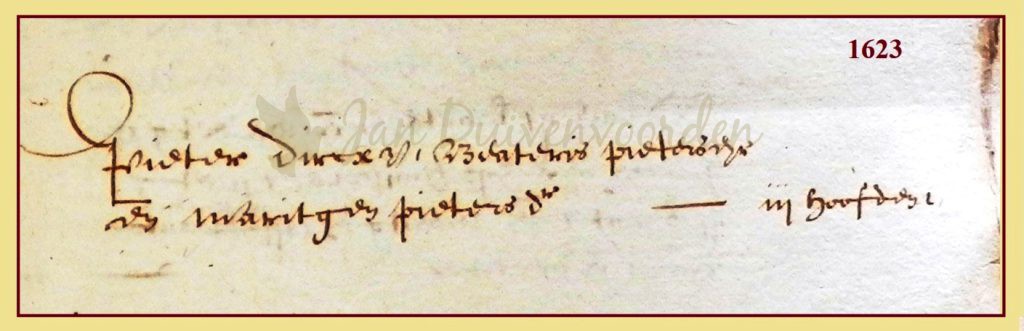 1623
Jan Duivenvoorden
Pieter Dircxz, Beateris pietersdr
en Maritgen pieters dr — iij hoofden,